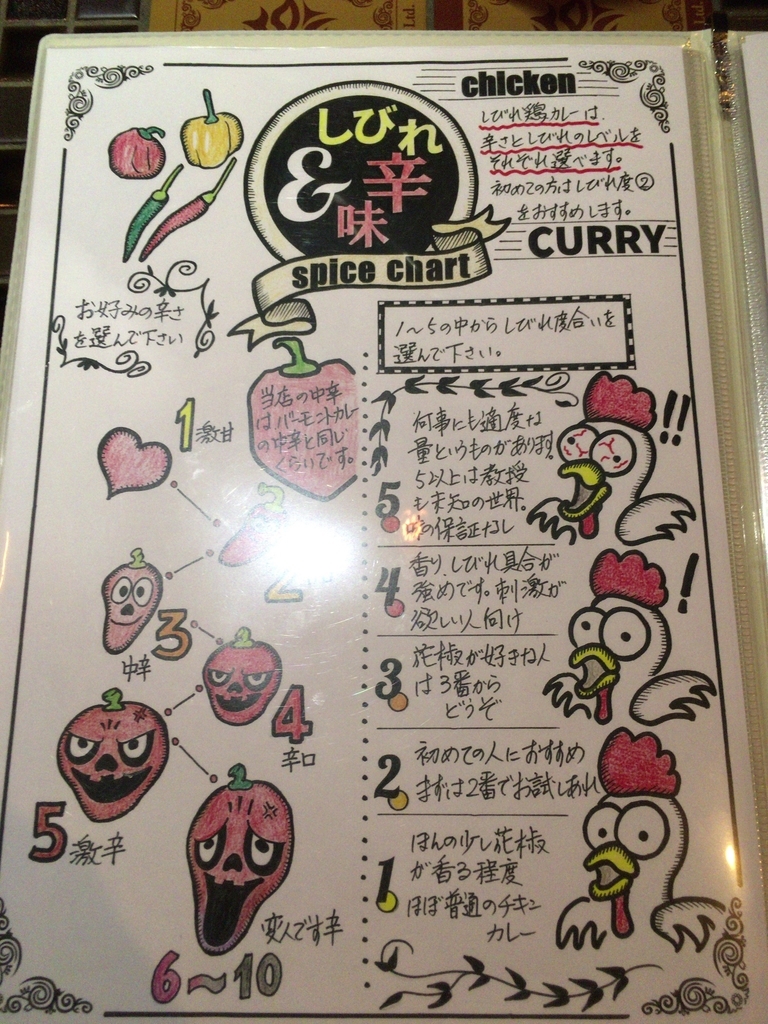 chicken
しびれ
&
辛
味
spice chart
しびれ鶏カレーは、
辛さとしびれのレベルを
それぞれ選べます。
初めての方はしびれ度②
をおすすめします。
CURRY
お好みの辛さ
を選んで下さい
当店の中辛
はバーモントカレー
の中辛と同じ
くらいです。
1 激甘
2
3
中辛
4
辛口
5 激辛
変人です辛
6〜10
1〜5の中からしびれ度合いを
選んで下さい。
何事にも適度な
量というものがあります!
5以上は教授
も未知の世界。
味の保証なし
5
!!
香り、しびれ具合が
強めです。刺激が
欲しい人向け
4
!
花椒が好きな人
は3番から
どうぞ
3
初めての人におすすめ
まずは2番でお試しあれ
2
ほんの少し花椒
が香る程度
ほぼ普通のチキン
カレー
1
Ltd.
Ltd.